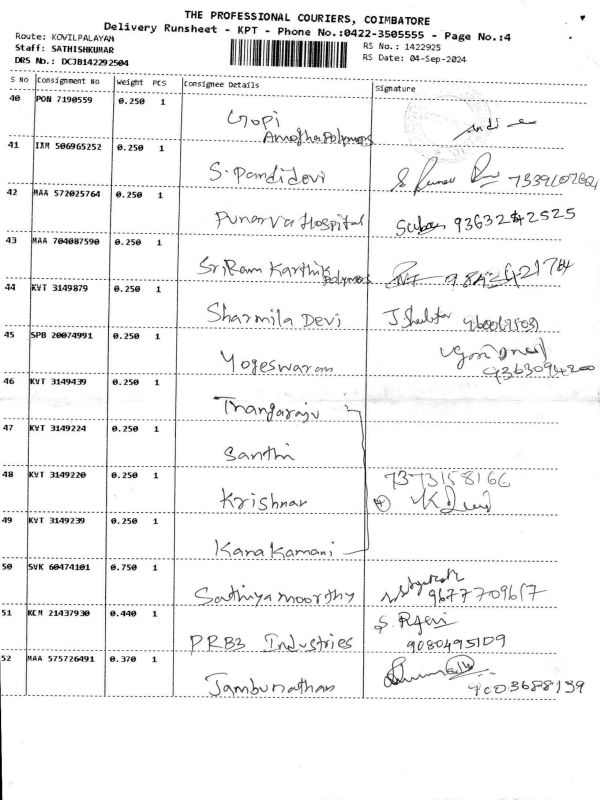 THE PROFESSIONAL COURIERS, COIMBATORE
Delivery Runsheet - KPT - Phone No.:0422-3505555 - Page No.:4
Route: KOVILPALAYAM
Staff: SATHISHKUMAR RS No.: 1422925
DRS No.: DCJB142292504 RS Date: 04-Sep-2024
S No Consignment No Weight PCS Consignee Details Signature
40 PON 7190559 0.250 1
Gopi
Amogha Polymers
41 IXM 506965252 0.250 1
S. Pandidevi
42 MAA 572025764 0.250 1
Punarva Hospital 9363242525
43 MAA 704087590 0.250 1
SriRam Karthik Polymers
44 KVT 3149879 0.250 1
Sharmila Devi
45 SPB 20074991 0.250 1
Yogeswaran 9363094200
46 KVT 3149439 0.250 1
Thangaraju
47 KVT 3149224 0.250 1
Santhi
48 KVT 3149220 0.250 1
Krishnan 7373158166
49 KVT 3149239 0.250 1
Kanakamani
50 SVK 60474101 0.750 1
Sathiyamoorthy 9677709617
51 KCM 21437930 0.440 1
PRB3 Industries 9080495109
52 MAA 575726491 0.370 1
Jambunathan